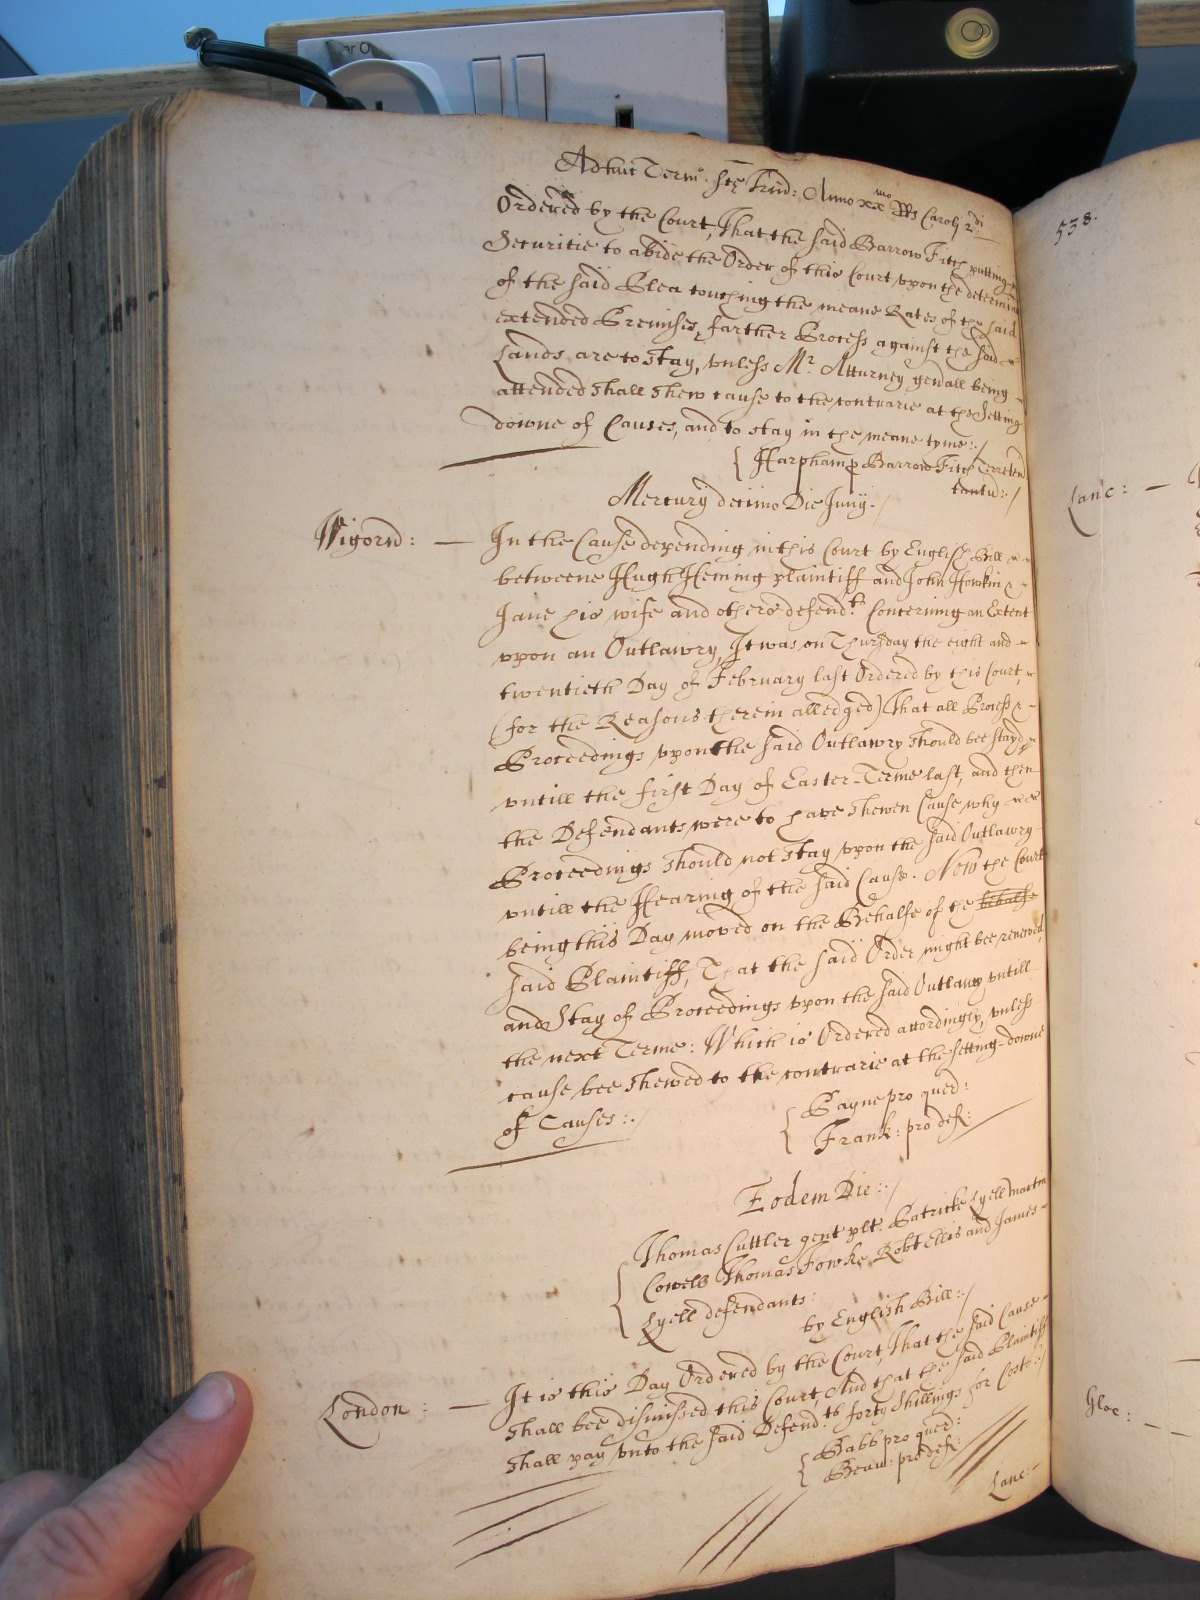 Adhuc Term.o Ste Trin: Anno xxmo Rs Caroli 2di
Ordered by the Court, That the said Barrow Fitch putting in
Securitie to abide the Order of this Court vpon the determin
of the said Plea touching the meane Rates of the said
extended Premises, farther Process against the said
Lands are to stay, vnless Mr. Atturney genall being
attended shall shew cause to the contrarie at the Setting
downe of Causes, and to stay in the meane tyme:./
{ Harpham p Barrow Fitch Terr ten
tantu:./
Mercurij decimo Die Junij./
Wigorn: — In the Cause depending in this Court by English Bill
betweene Hugh Heming plaintiff and John Howkin &
Jane his wife and others defend.ts Concerning an Extent
vpon an Outlawry, It was on Thursday the eight and
twentieth Day of February last Ordered by this Court,
(for the Reasons therein alledged) That all Process &
Proceedings vpon the said Outlawry should bee stayd
vntill the first Day of Easter-Terme last, and then
the Defendants were to have shewen Cause why
Proceedings should not stay vpon the said Outlawry
vntill the Hearing of the said Cause. Now the Court
being this Day moved on the Behalfe of the behalfe
said Plaintiff, That the said Order might bee renewed,
and Stay of Proceedings vpon the said Outlawry vntill
the next Terme: Which is Ordered accordingly, vnless
cause bee shewed to the contrarie at the setting-downe
of Causes:.
{ Payne pro quer:
Frank: pro def:
Eodem Die:./
{ Thomas Cuttler gent plt. Patricke Lyell Martin
Cowells Thomas Fowke Robt Ellis and James
Lyell defendants:
by English Bill:./
London: — It is this Day Ordered by the Court, That the said Cause
shall bee dismissed this Court, And that the said Plaintiff
shall pay vnto the said Defend.ts forty shillings for Costs:./
{ Babb pro quer:
Beau: pro def:
Lanc:
538.
Lanc: —
Gloc: —